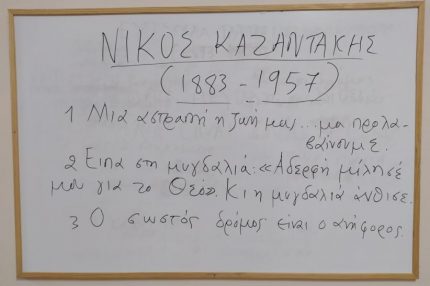 ΝΙΚΟΣ ΚΑΖΑΝΤΑΚΗΣ
(1883 - 1957)
1 Μια αστραπή η ζωή μας... μα προλα-
βαίνουμε.
2 Είπα στη μυγδαλιά: «Αδερφή μίλησέ
μου για το Θεό». Κι η μυγδαλιά άνθισε.
3 Ο σωστός δρόμος είναι ο ανήφορος.